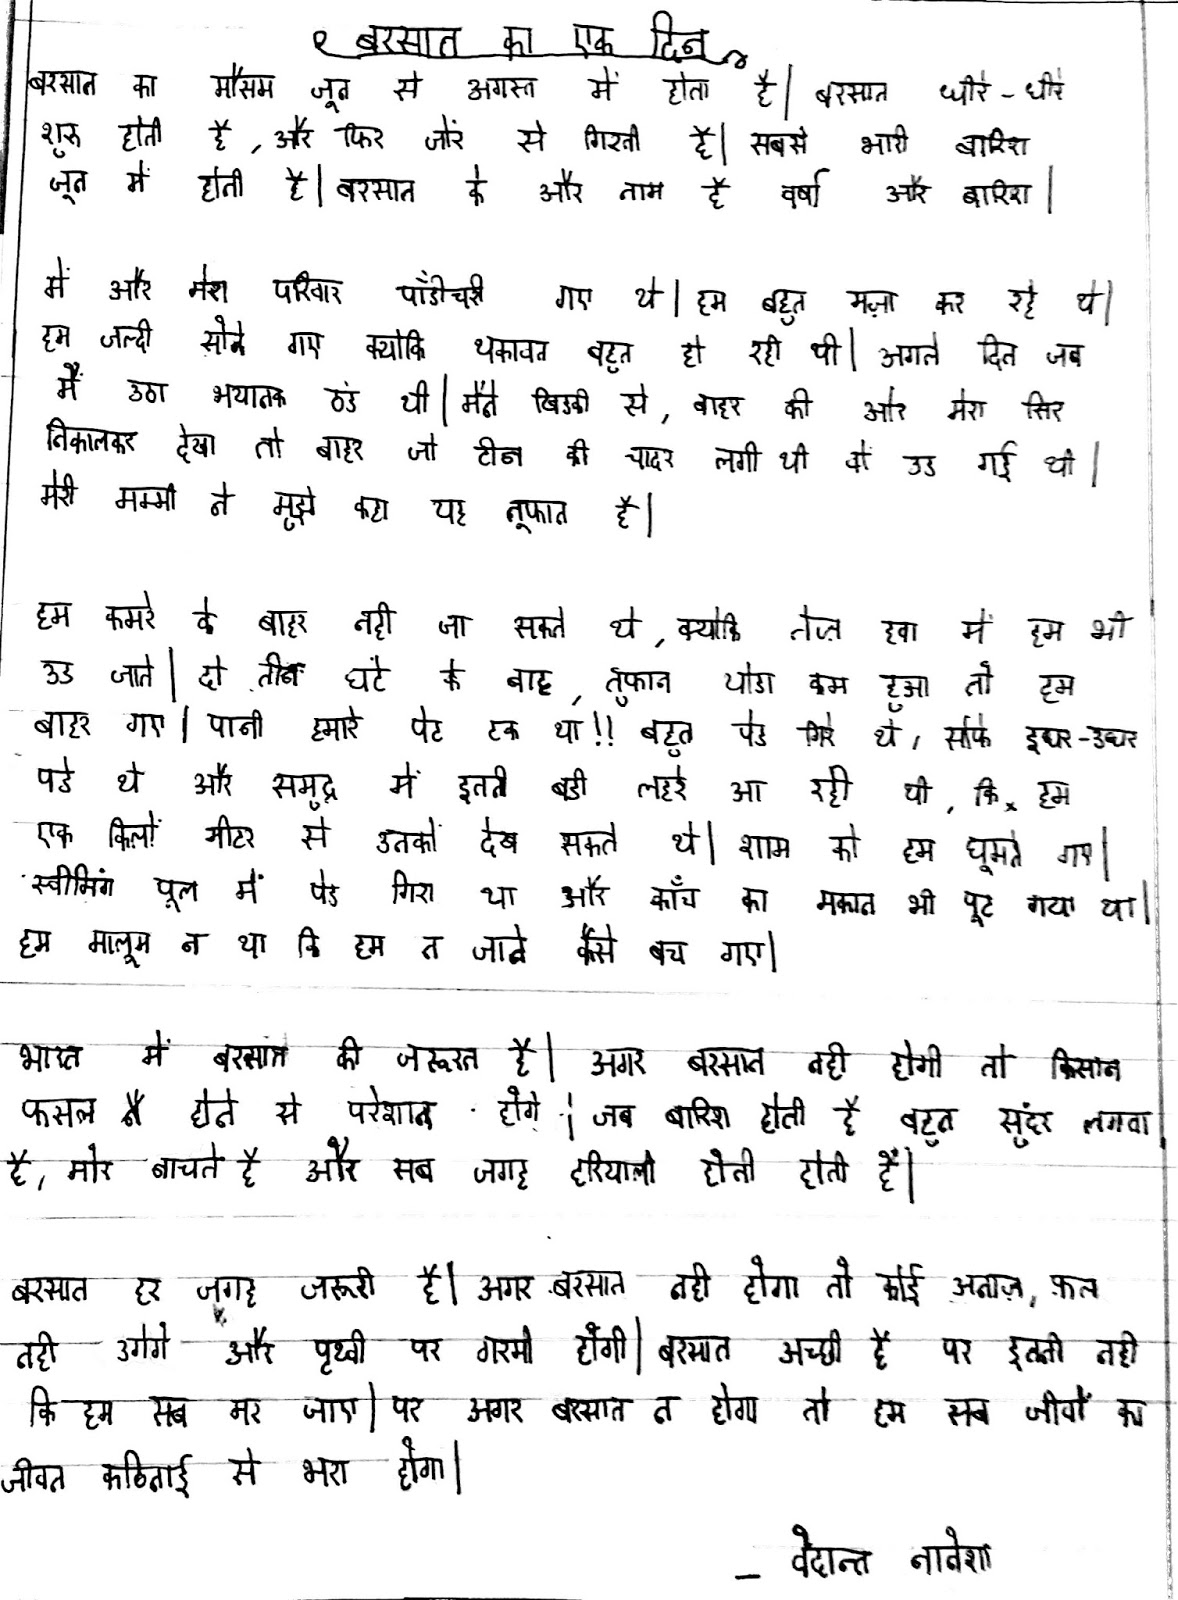 बरसात का एक दिन
बरसात का मौसम जून से अगस्त में होता है| बरसात धीरे-धीरे
शुरु होती है, और फिर जोर से गिरती है| सबसे भारी बारिश
जून में होती है| बरसात के और नाम है वर्षा और बारिश|
में और मेरा परिवार पाँडीचरी गए थे| हम बहुत मज़ा कर रहे थे|
हम जल्दी सोने गए क्योकि थकावत बहुत हो रही थी| अगले दिन जब
मैं उठा भयानक ठंड थी| मैंने खिडकी से, बाहर की और मेरा सिर
निकालकर देखा तो बाहर जो टीन की चादर लगी थी वो उड गई थी|
मेरी मम्मी ने मुझे कहा यह तूफान है|
हम कमरे के बाहर नही जा सकते थे, क्योकि तेज़ हवा में हम भी
उड जाते| दो तीन घंटे के बाद, तुफान थोडा कम हुआ तो हम
बाहर गए| पानी हमारे पेट टक था!! बहुत पेड गिरे थे, साँफे इधर-उधर
पडे थे और समुद्र में इतनी बडी लहरे आ रही थी, कि हम
एक किलों मीटर से उनको देख सकते थे| शाम को हम घूमने गए|
स्वीमिंग पूल में पेड गिरा था और काँच का मकान भी फूट गया था|
हम मालूम न था कि हम न जाने कैसे बच गए|
भारत में बरसात की जरूरत है| अगर बरसात नही होगी तो किसान
फसल न होने से परेशान होंगे| जब बारिश होती है बहुत सुंदर लगता
है, मोर नाचते है और सब जगह हरियाली होती होती हैं|
बरसात हर जगह जरूरी है| अगर बरसात नही होगा तो कोई अनाज़, फ़ल
नही उगेगे और पृथ्वी पर गरमी होंगी| बरसात अच्छी है पर इतनी नही
कि हम सब मर जाए| पर अगर बरसात न होगा तो हम सब जीवों का
जीवन कठिनाई से भरा होगा|
– वेदान्त नावेशा